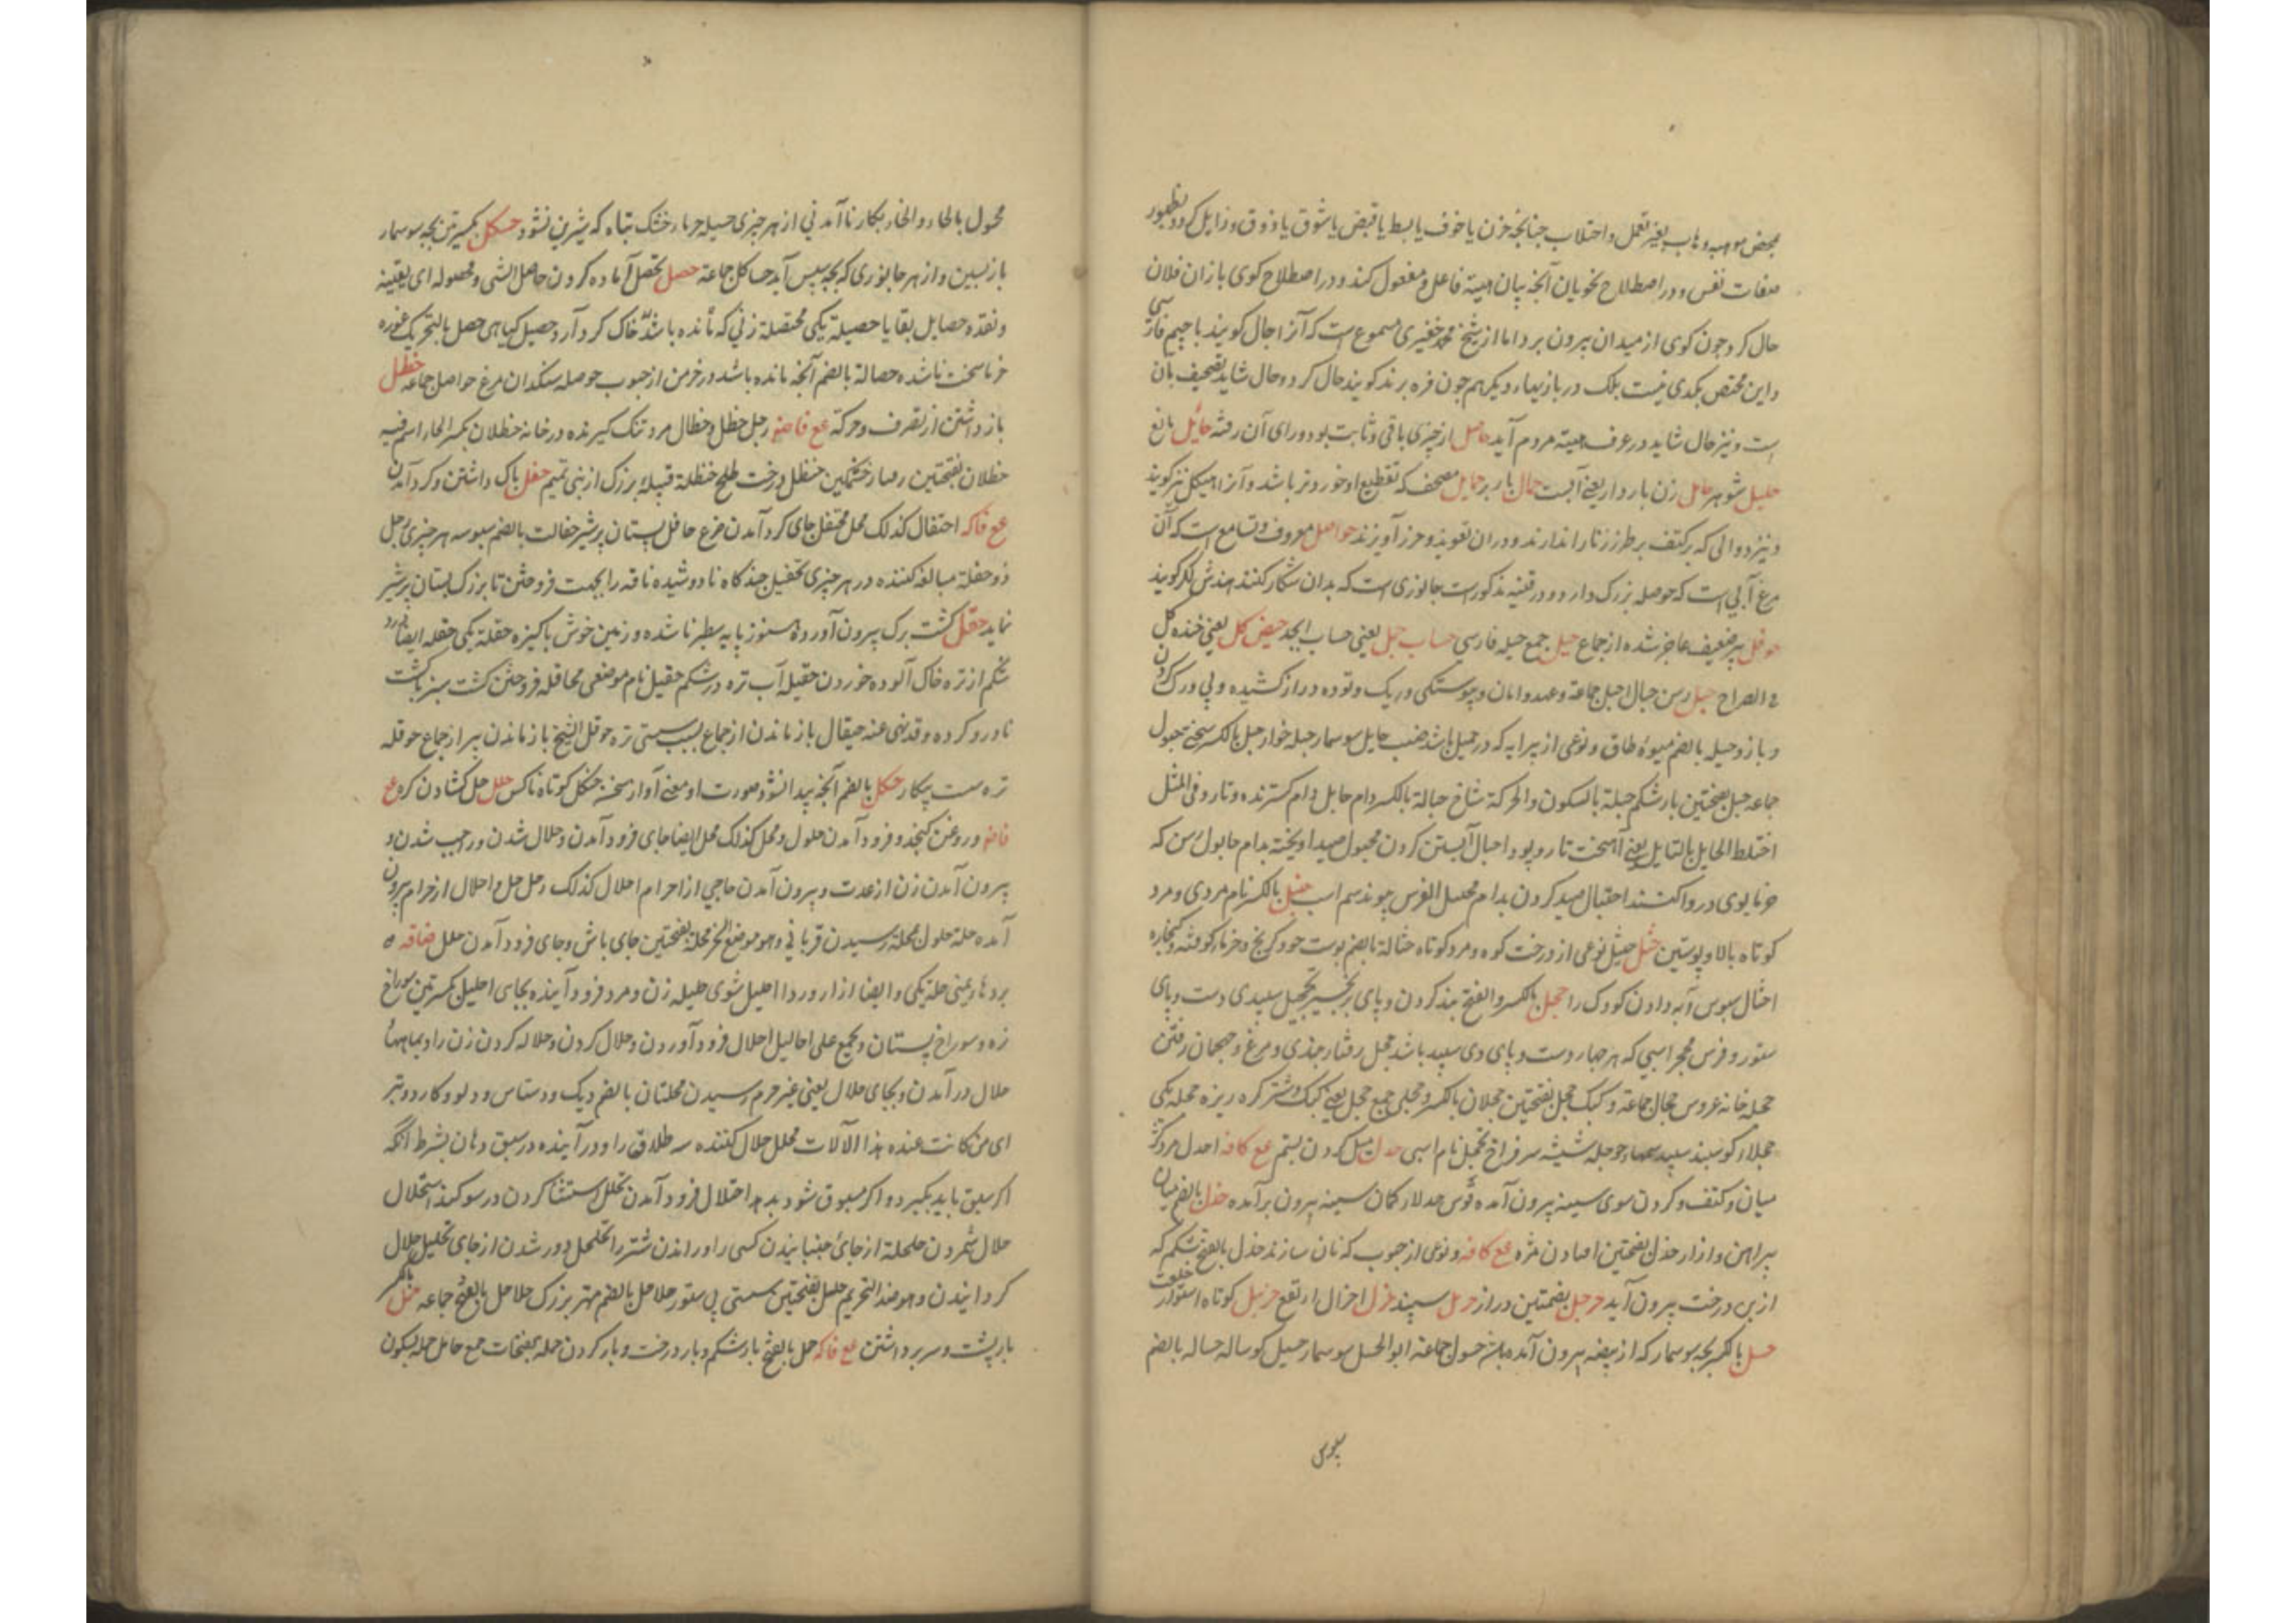 محض موهبه و هاب بغیر تعمل و اختلاب چنانچه حزن یا خوف یا بسط یا قبض یا شوق یا ذوق و زایل کردد بظهور
صفات نفس و در اصطلاح نحویان آنچه بیان هیئة فاعل و مفعول کند و در اصطلاح کوی بازان فلان
حال کرد چون کوی از میدان بیرون برد اما از شیخ محمد مسموع است که آنرا جال کویند با جیم فارسی
و این مختص بکدی نیست بلک در بازیهاء دیکر هم چون فره برند کویند حال کرد و حال شاید تصحیف بان
است و نیز حال شاید در عرف هیئة مردم آید حاصل از چیزی باقی و ثابت بود ورای آن رفته حائل مانع
حلیل شوهر حامل زن باردار یعنی آبست حمال باربر حمایل مصحف که تقطیع او خوردتر باشد و آنرا هیکل نیز کویند
و نیز دوالی که بر کتف بر طرز زنار اندازند و دران تعویذ و حرز آویزند حواصل معروف و تسامع است که آن
مرغ آبی است که حوصله بزرک دارد و در قنیه مذکورست جانوری است که بدان شکار کنند هندش کویند
حوقل پیر ضعیف عاجز شده از جماع حیل جمع حیله فارسی حساب جمل یعنی حساب ابجد حیض کل یعنی خنده کل
فی الصراح حبل رسن حبال احبل جماعة و عهد و امان و پیوستکی و ریک و توده دراز کشیده و پی و رک کردن
و بازو حبله بالضم میوهٔ طاق و نوعی از پیرایه که در حمیل باشد ضب حابل سوسمار حبله خوار حبل بالکسر سختی حبول
جماعه حبل بفتحتین بار شکم حبلة بالسکون و الحرکة شاخ حبالة بالکسر دام حابل دام کسترنده و تار و فی المثل
اختلط الحابل بالنابل یعنی آمیخت تار و پود احبال آبستن کردن محبول صید آویخته بدام حابول رسن که
خرما بوی در واکنند احتبال صید کردن بدام محتبل الفرس پیوند سم اسپ حنبل بالکسر نام مردی و مرد
کوتاه بالا و پوستین حثل حثیل نوعی از درخت کوه و مرد کوتاه حثالة بالضم پوست جو و کرنج و خرما کوفته و کنجاره
احثال سبوس آبه دادن کودک را حجل بالکسر و الفتح بند کردن و پای برنجن تحجیل سپیدی دست و پای
ستور و فرس محجل اسپی که هر چهار دست و پای وی سپید باشد حجل رفتار جنذی و مرغ و جهجهان رفتن
حجله خانه عروس حجال جماعة و کبک حجل بفتحتین حجلان بالکسر و حجلی جمع حجل یعنی کبک و شتر کره ریزه حجله یکی
حجلاء کوسبند سپید سمها حوجله شیشه سر فراخ تحجل نام اسپی حدل میل کردن بستم عع کافه احدل مرد کژ
میان و کتف و کردن سوی سینه بیرون آمده قوس حدلاء کمان سینه بیرون برآمده حذل بالضم میان
پیراهن و ازار حذل بفتحتین افتادن مژه عع کافه و نوعی از حبوب که نان سازند حذل بالفتح شکم که
از بن درخت بیرون آید حرجل بضمتین دراز حرمل سپند حزل احزال ارتفع حزنبل کوتاه استوار خلقت
حسل بالکسر بچه سوسمار که از بیضه بیرون آمده باشد حسول جماعة ابو الحسل سوسمار حسیل کوساله حساله بالضم
سبوس
محول بالحاء و الخاء بکار ناآمدنی از هر چیزی حسیله خرماء خشک تباه که شیرین نشود حسکل بکسرتین بچه سوسمار
بازپسین و از هر جانوری که بچه سپس آید حساکل جماعة حصل تحصل آماده کردن حاصل الشی و محصوله ای بقیته
و نقده حصایل بقایا حصیله یکی محتصلة زنی که مانده باشد خاک کرد آرد حصیل کیاهی حصل بالتحریک غوره
خرما سخت ناشده حصالة بالضم آنچه مانده باشد در خرمن از حبوب حوصله سنکدان مرغ حواصل جماعه حظل
بازداشتن از تصرف و حرکة عع فاضم رجل حظل و حظال مرد تنک کیرنده در خانه حظلان بکسر الحاء اسم فیه
حظلان بفتحتین رفتار خشمکین حنظل درخت طلح حنظلة قبیله بزرک از بنی تمیم حفل باک داشتن و کرد آمدن
عع فاکه احتفال کذلک محل محتفل جای کرد آمدن ضرع حافل پستان پر شیر حفالت بالضم سبوسه هر چیزی رجل
ذو حفلة مبالغه کننده در هر چیزی تحفیل چندکاه نادوشیده ناقه را بجهت فروختن تا بزرک پستان پر شیر
نماید حقل کشت برک بیرون آوردهٔ هنوز پایه سطبر ناشده و زمین خوش پاکیزه حقله یکی حقله ایضاً درد
شکم از تره خاک آلوده خوردن حقیله آب تره در شکم حقیل نام موضعی محاقله فروختن کشت سبز با کشت
نادرو کرده و قد نهی عنه حیقال بازماندن از جماع بسبب سستی تره حوقل الشیخ بازماندن پیر از جماع حوقله
تره سست بیکار حکل بالضم آنچه پیدا نشود صورت او معنی آواز سخن حنکل کوتاه ناکس حلل حل کشادن کره عع
فاضم و روغن کنجد و فرود آمدن حلول و محل کذلک محل ایضا جای فرود آمدن و حلال شدن و واجب شدن و
بیرون آمدن زن از عدت و بیرون آمدن حاجی از احرام احلال کذلک رجل حل و احلال از حرام بیرون
آمده حله حلول محله رسیدن قربانی و هو موضع النحر محلة بفتحتین جای باش و جای فرود آمدن حلل ضاقه ه
برد هاء یمنی حله یکی و ایضا ازار و ردا احلیل شوی حلیله زن و مرد فرود آینده بجای احلیل بکسرتین سوراخ
زه و سوراخ پستان و یجمع علی احالیل احلال فرود آوردن و حلال کردن و حلاله کردن زن را و بماههاء
حلال درآمدن و بجای حلال یعنی غیر حرم رسیدن محلتان بالضم دیک و دستاس و دلو و کارد و تبر
ای من کانت عنده هذا الآلات محلل حلال کننده سه طلاق را و درآینده در سبق و هان بشرط آنکه
اکر سبق یابد بکیرد و اکر مسبوق شود بدهد احتلال فرود آمدن تحلل استثنا کردن در سوکند استحلال
حلال شمردن حلحلة از جای جنبانیدن کسی را و راندن شتر را تحلحل دور شدن از جای تحلیل حلال
کردانیدن و هو ضد التحریم حلل بفتحتین سستی پی ستور حلاحل بالضم مهتر بزرک حلاحل بالفتح جماعه حمل بالکسر
بار پشت و سر برداشتن عع فاکه حمل بالفتح بار شکم و بار درخت و بار کردن حمله بفتحات جمع حامل حمله بسکون